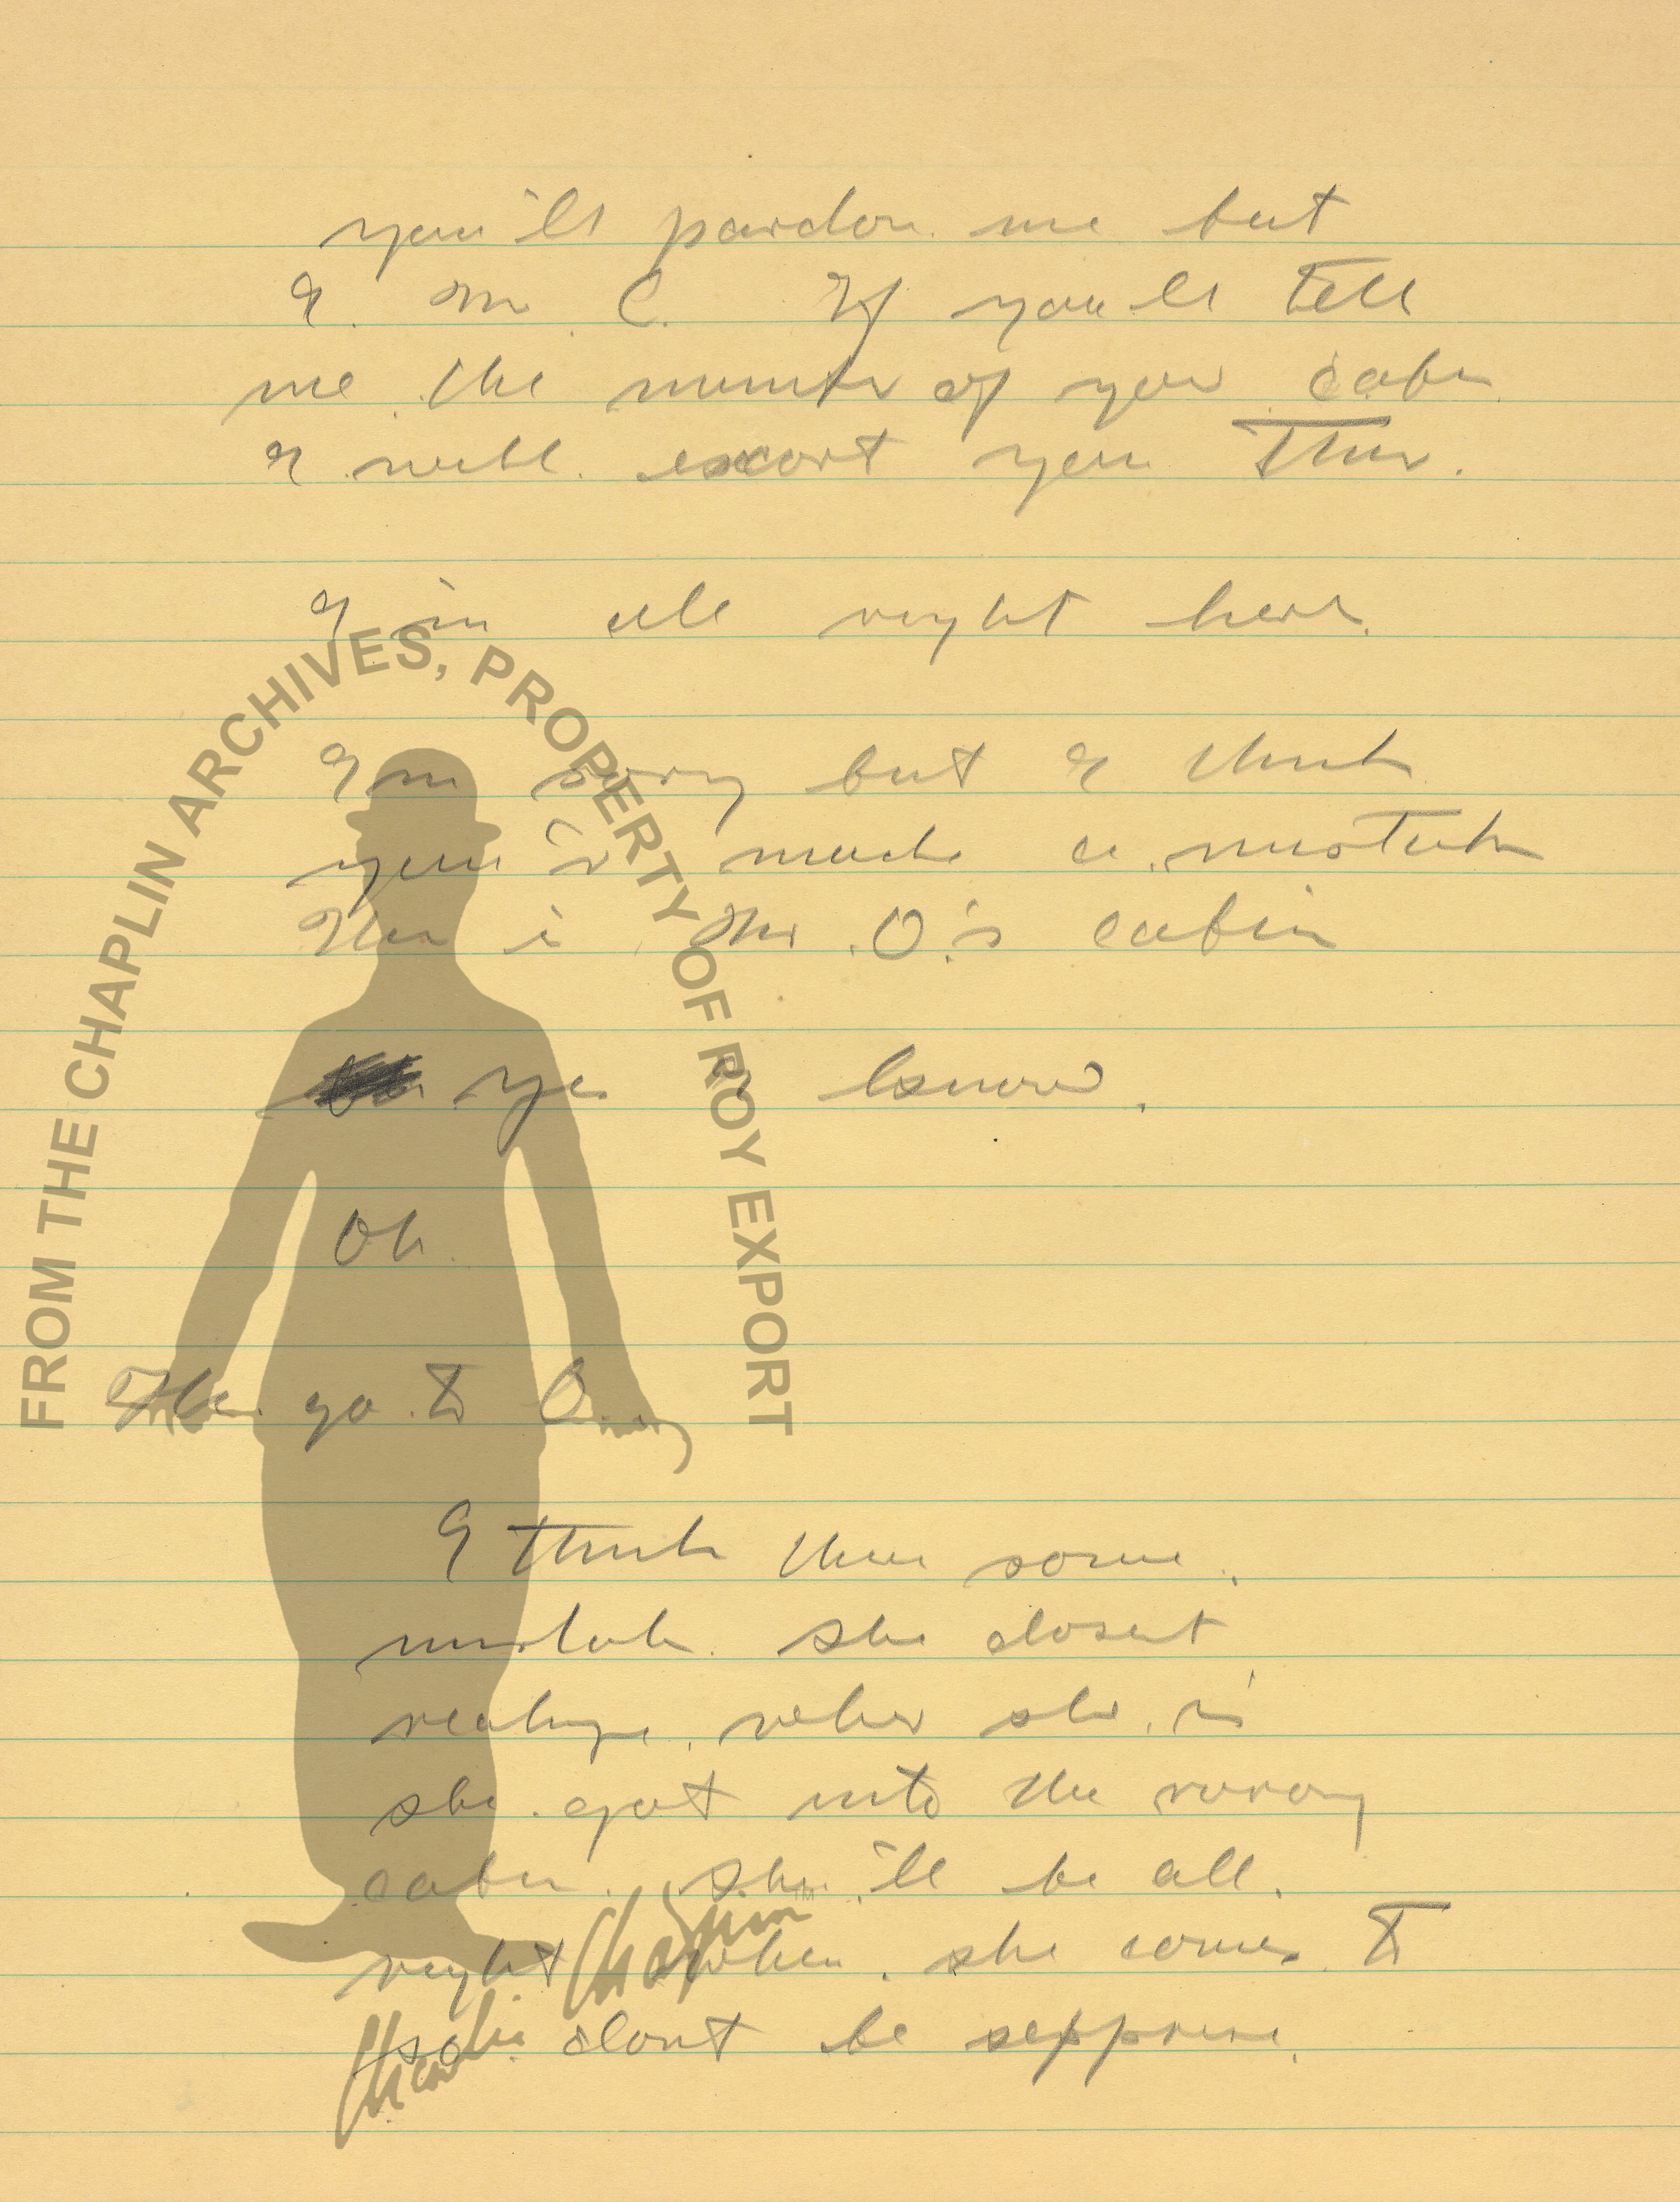 you'll pardon me but
I m C. If you ll tell
me the number of your cabin
I will escort you Ther.
I'm all right here.
I m sorry but I think
you 'v made a mistake
This is Mr O's cabin
Yes I know.
Oh.
Then go to O.
I think there some
mistake. she dosent
realize wher she is
she got into the wrong
cabin. She 'll be all.
right when she comes to
so dont be supprise.
FROM THE CHAPLIN ARCHIVES, PROPERTY OF ROY EXPORT
Charlie Chaplin TM